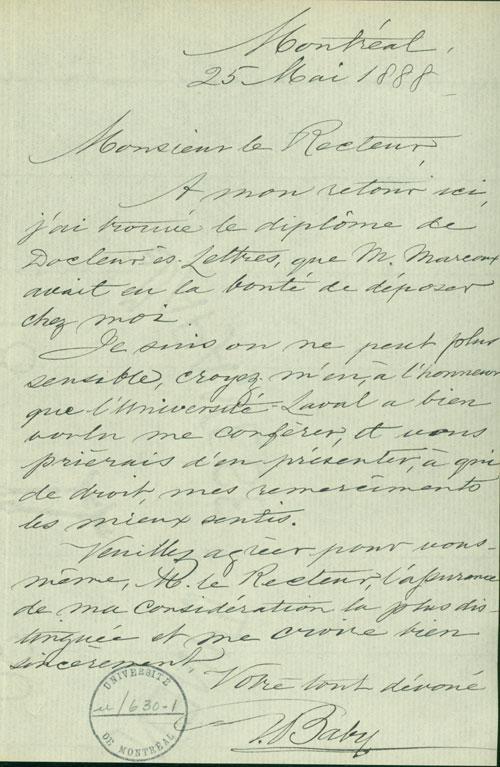 Montréal,
25 Mai 1888
Monsieur le Recteur,
A mon retour ici,
j'ai trouvé le diplôme de
Docteur-ès-Lettres, que M. Marcoux
avait eu la bonté de déposer
chez moi.
Je suis on ne peut plus
sensible, croyez-m'en, à l'honneur
que l'Université-Laval a bien
voulu me conférer, et vous
prierais d'en présenter, à qui
de droit, mes remercîments
les mieux sentis.
Veuillez agréer pour vous-
même, M. le Recteur, l'assurance
de ma considération la plus dis-
tinguée et me croire bien
sincèrement,
Votre tout dévoué
Baby
UNIVERSITÉ
u/630-1
DE MONTRÉAL